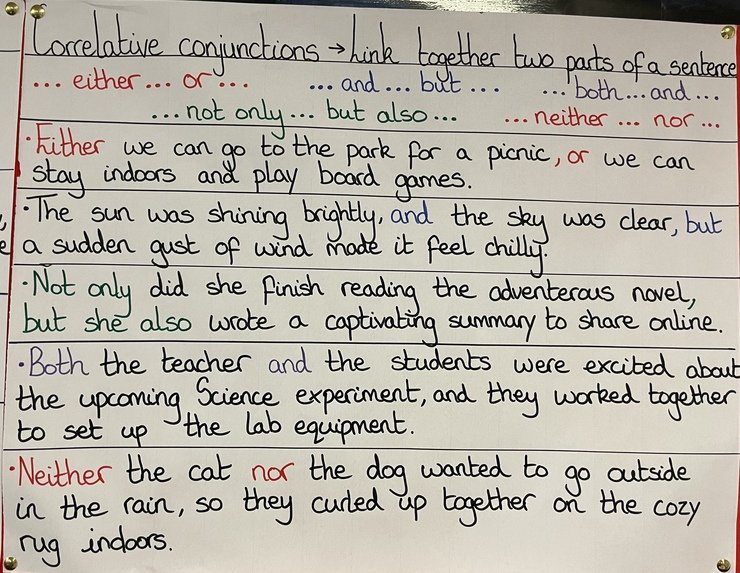 Correlative conjunctions → Link together two parts of a sentence
... either ... or ... ... and ... but ... ... both ... and ...
... not only ... but also ... ... neither ... nor ...
· Either we can go to the park for a picnic, or we can
stay indoors and play board games.
· The sun was shining brightly, and the sky was clear, but
a sudden gust of wind made it feel chilly.
· Not only did she finish reading the adventerous novel,
but she also wrote a captivating summary to share online.
· Both the teacher and the students were excited about
the upcoming Science experiment, and they worked together
to set up the lab equipment.
· Neither the cat nor the dog wanted to go outside
in the rain, so they curled up together on the cozy
rug indoors.